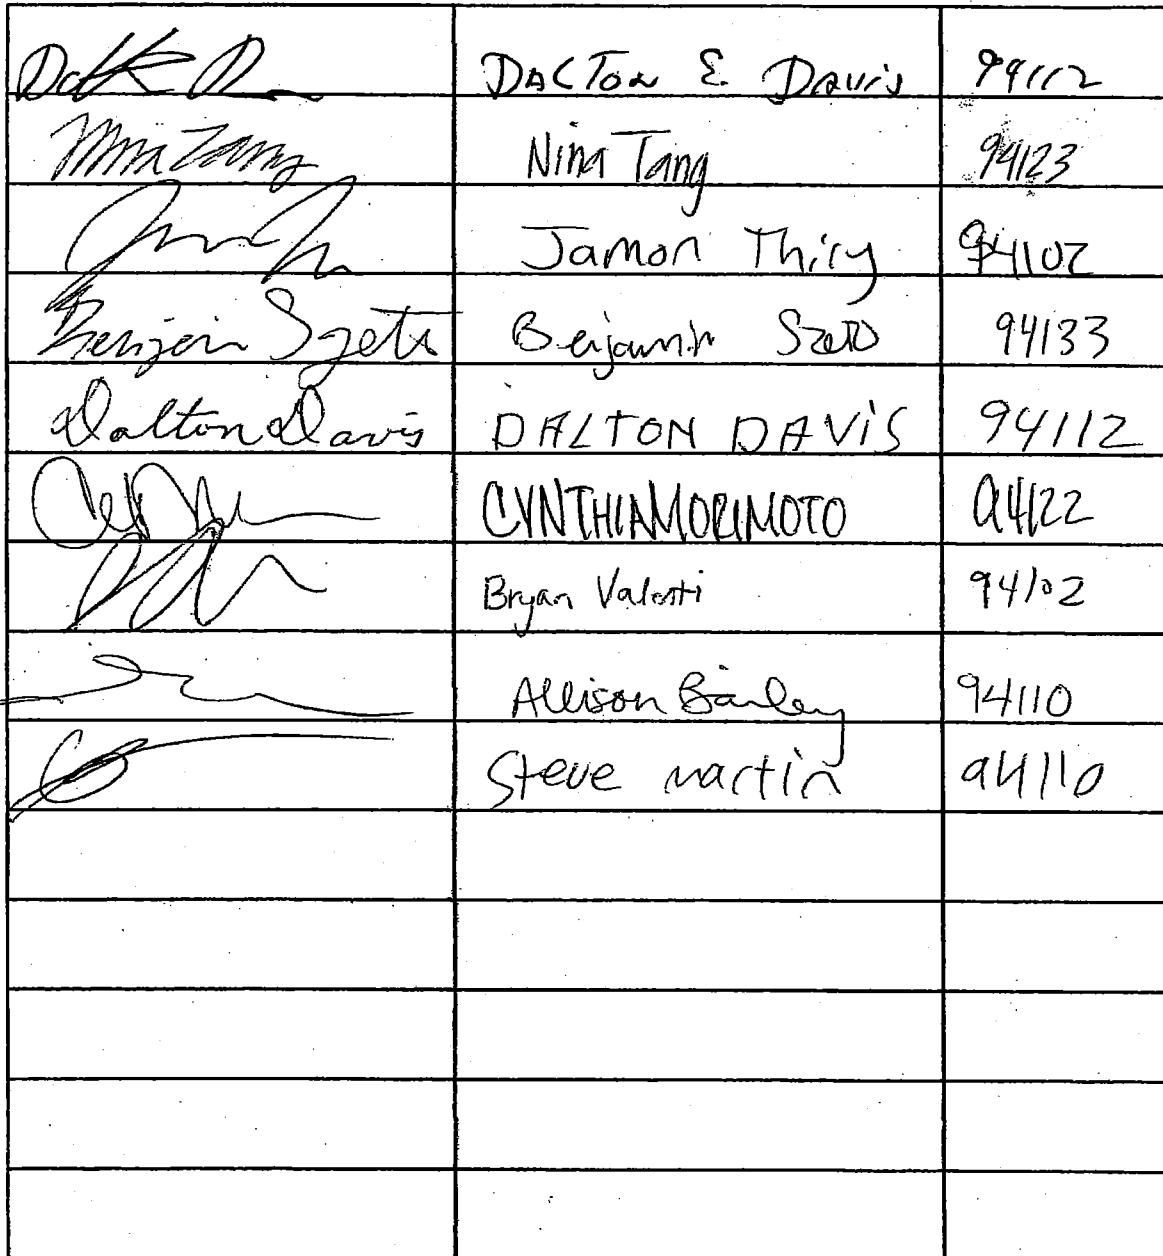 DALTON E Davis 94112
Nina Tang Nina Tang 94123
Jamon Thiry 94102
Benjamin Szeto Benjamin Szeto 94133
Dalton Davis DALTON DAVIS 94112
CYNTHIA MORIMOTO 94122
Bryan Valenti 94102
Allison Bailey 94110
Steve martin 94110